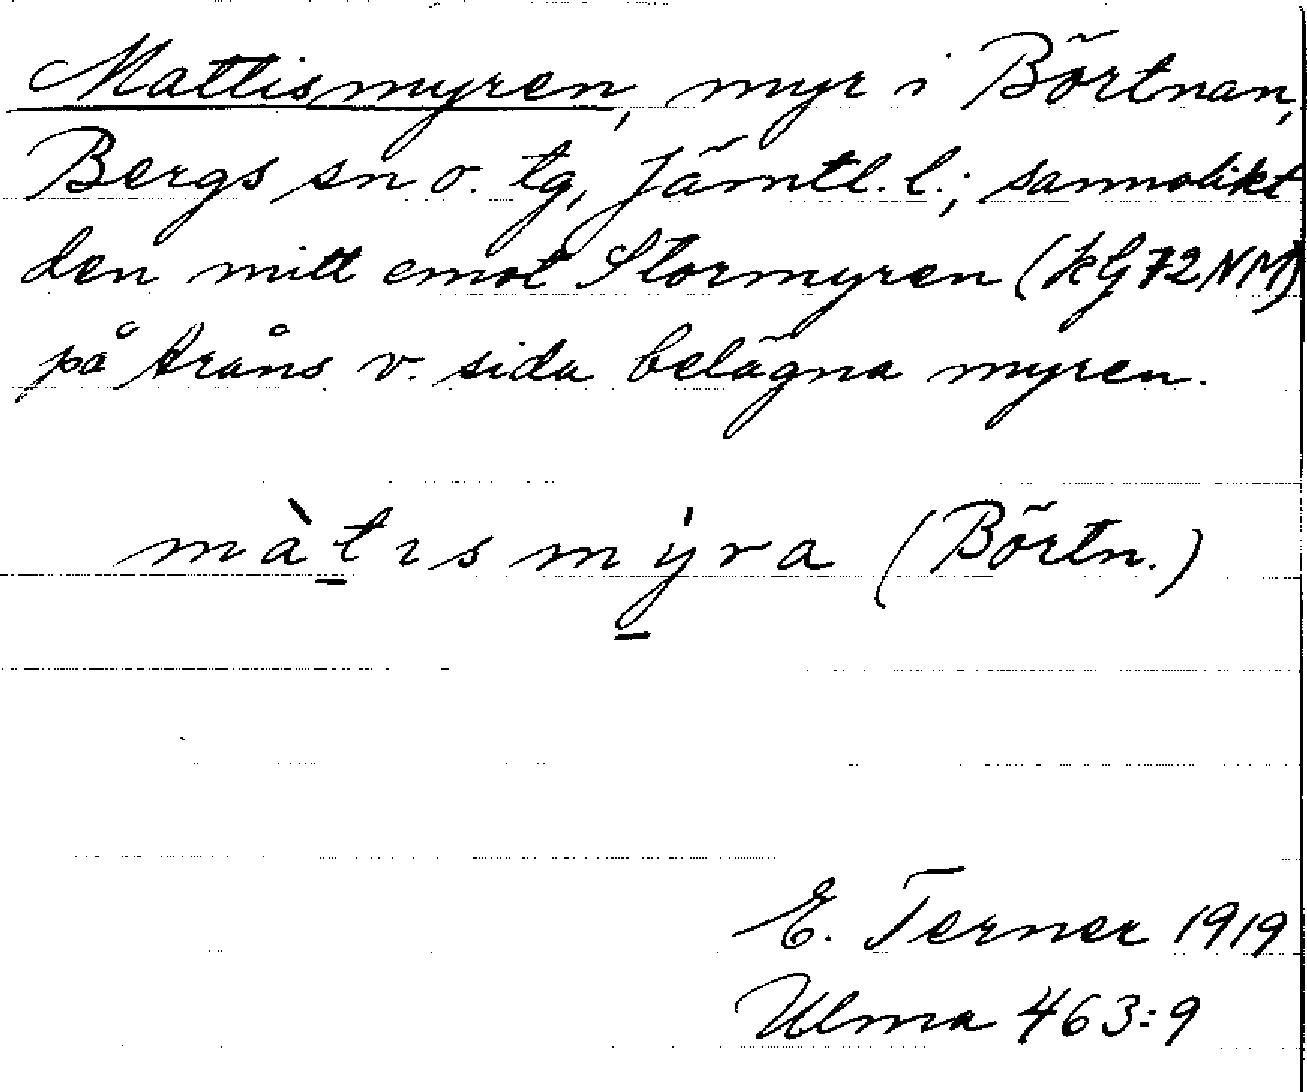 Mattismyren, myr i Börtnan,
Bergs sn o. tg, Jämtl. l.; sannolikt
den mitt emot Stormyren (kG72NM)
på åns v. sida belägna myren.
màtısmýra (Börtn.)
E. Terner 1919
Ulma 463:9